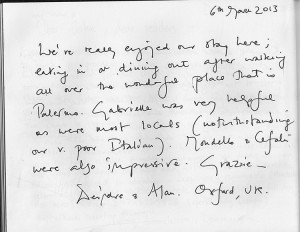 6th June 2013
We've really enjoyed our stay here;
eating in or dining out after walking
all over the wonderful place that is
Palermo. Gabrielle was very helpful
as were most locals (notwithstanding
our v. poor Italian). Mondello & Cefalù
were also impressive. Grazie –
Deirdre & Alan. Oxford, UK.